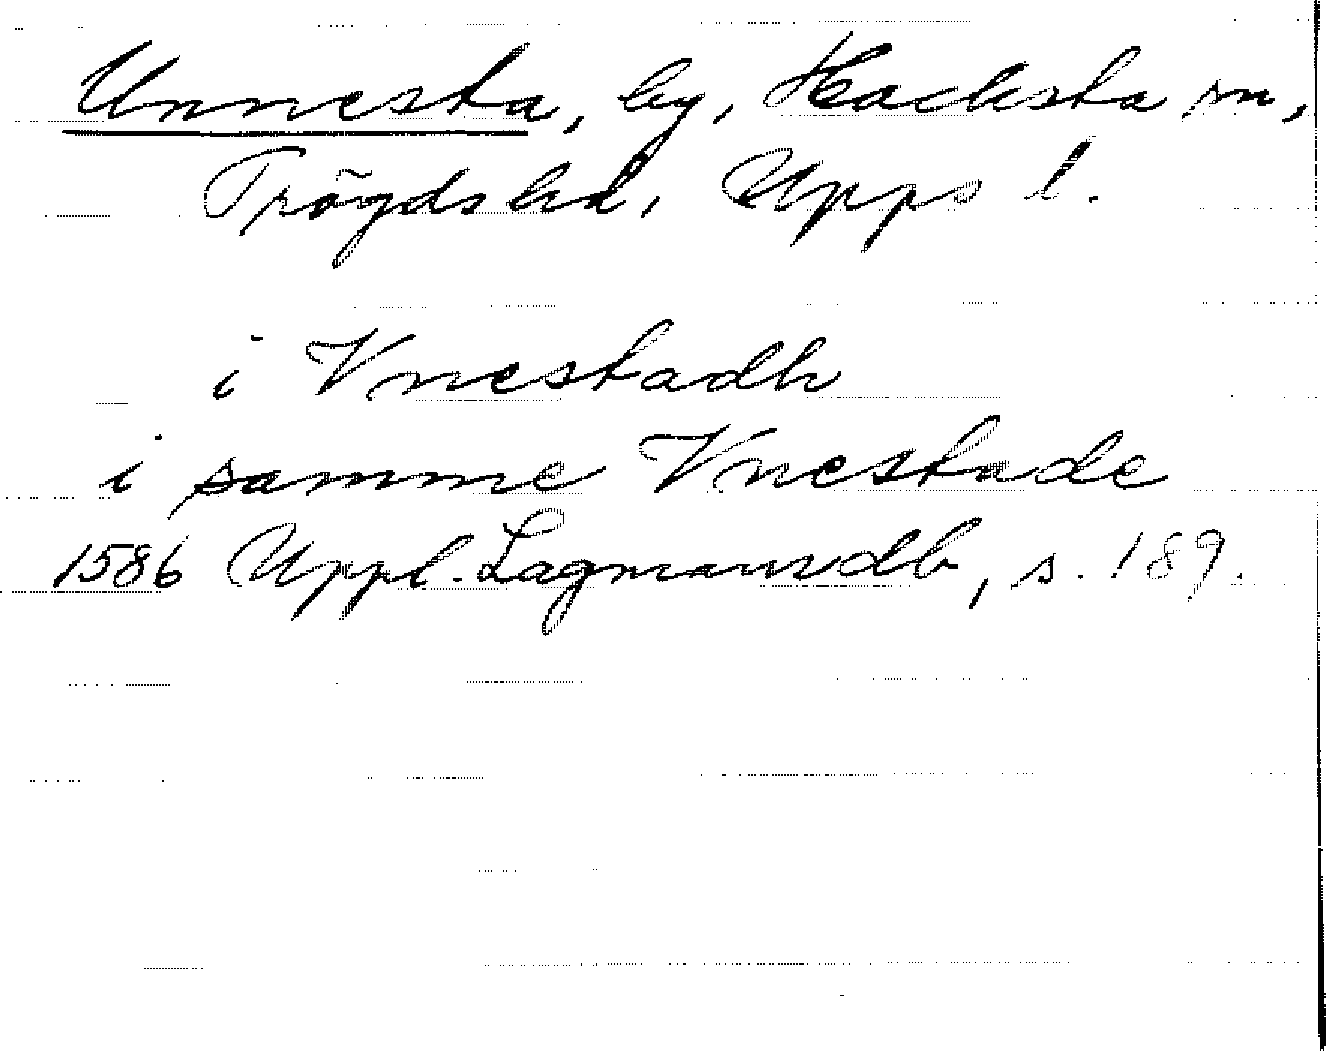 Unnesta, by, Hacksta sn,
Trögds hd, Upps l.
i Vnestadh
i samme Vnestade
1586 Uppl. Lagmansdb, s. 189.